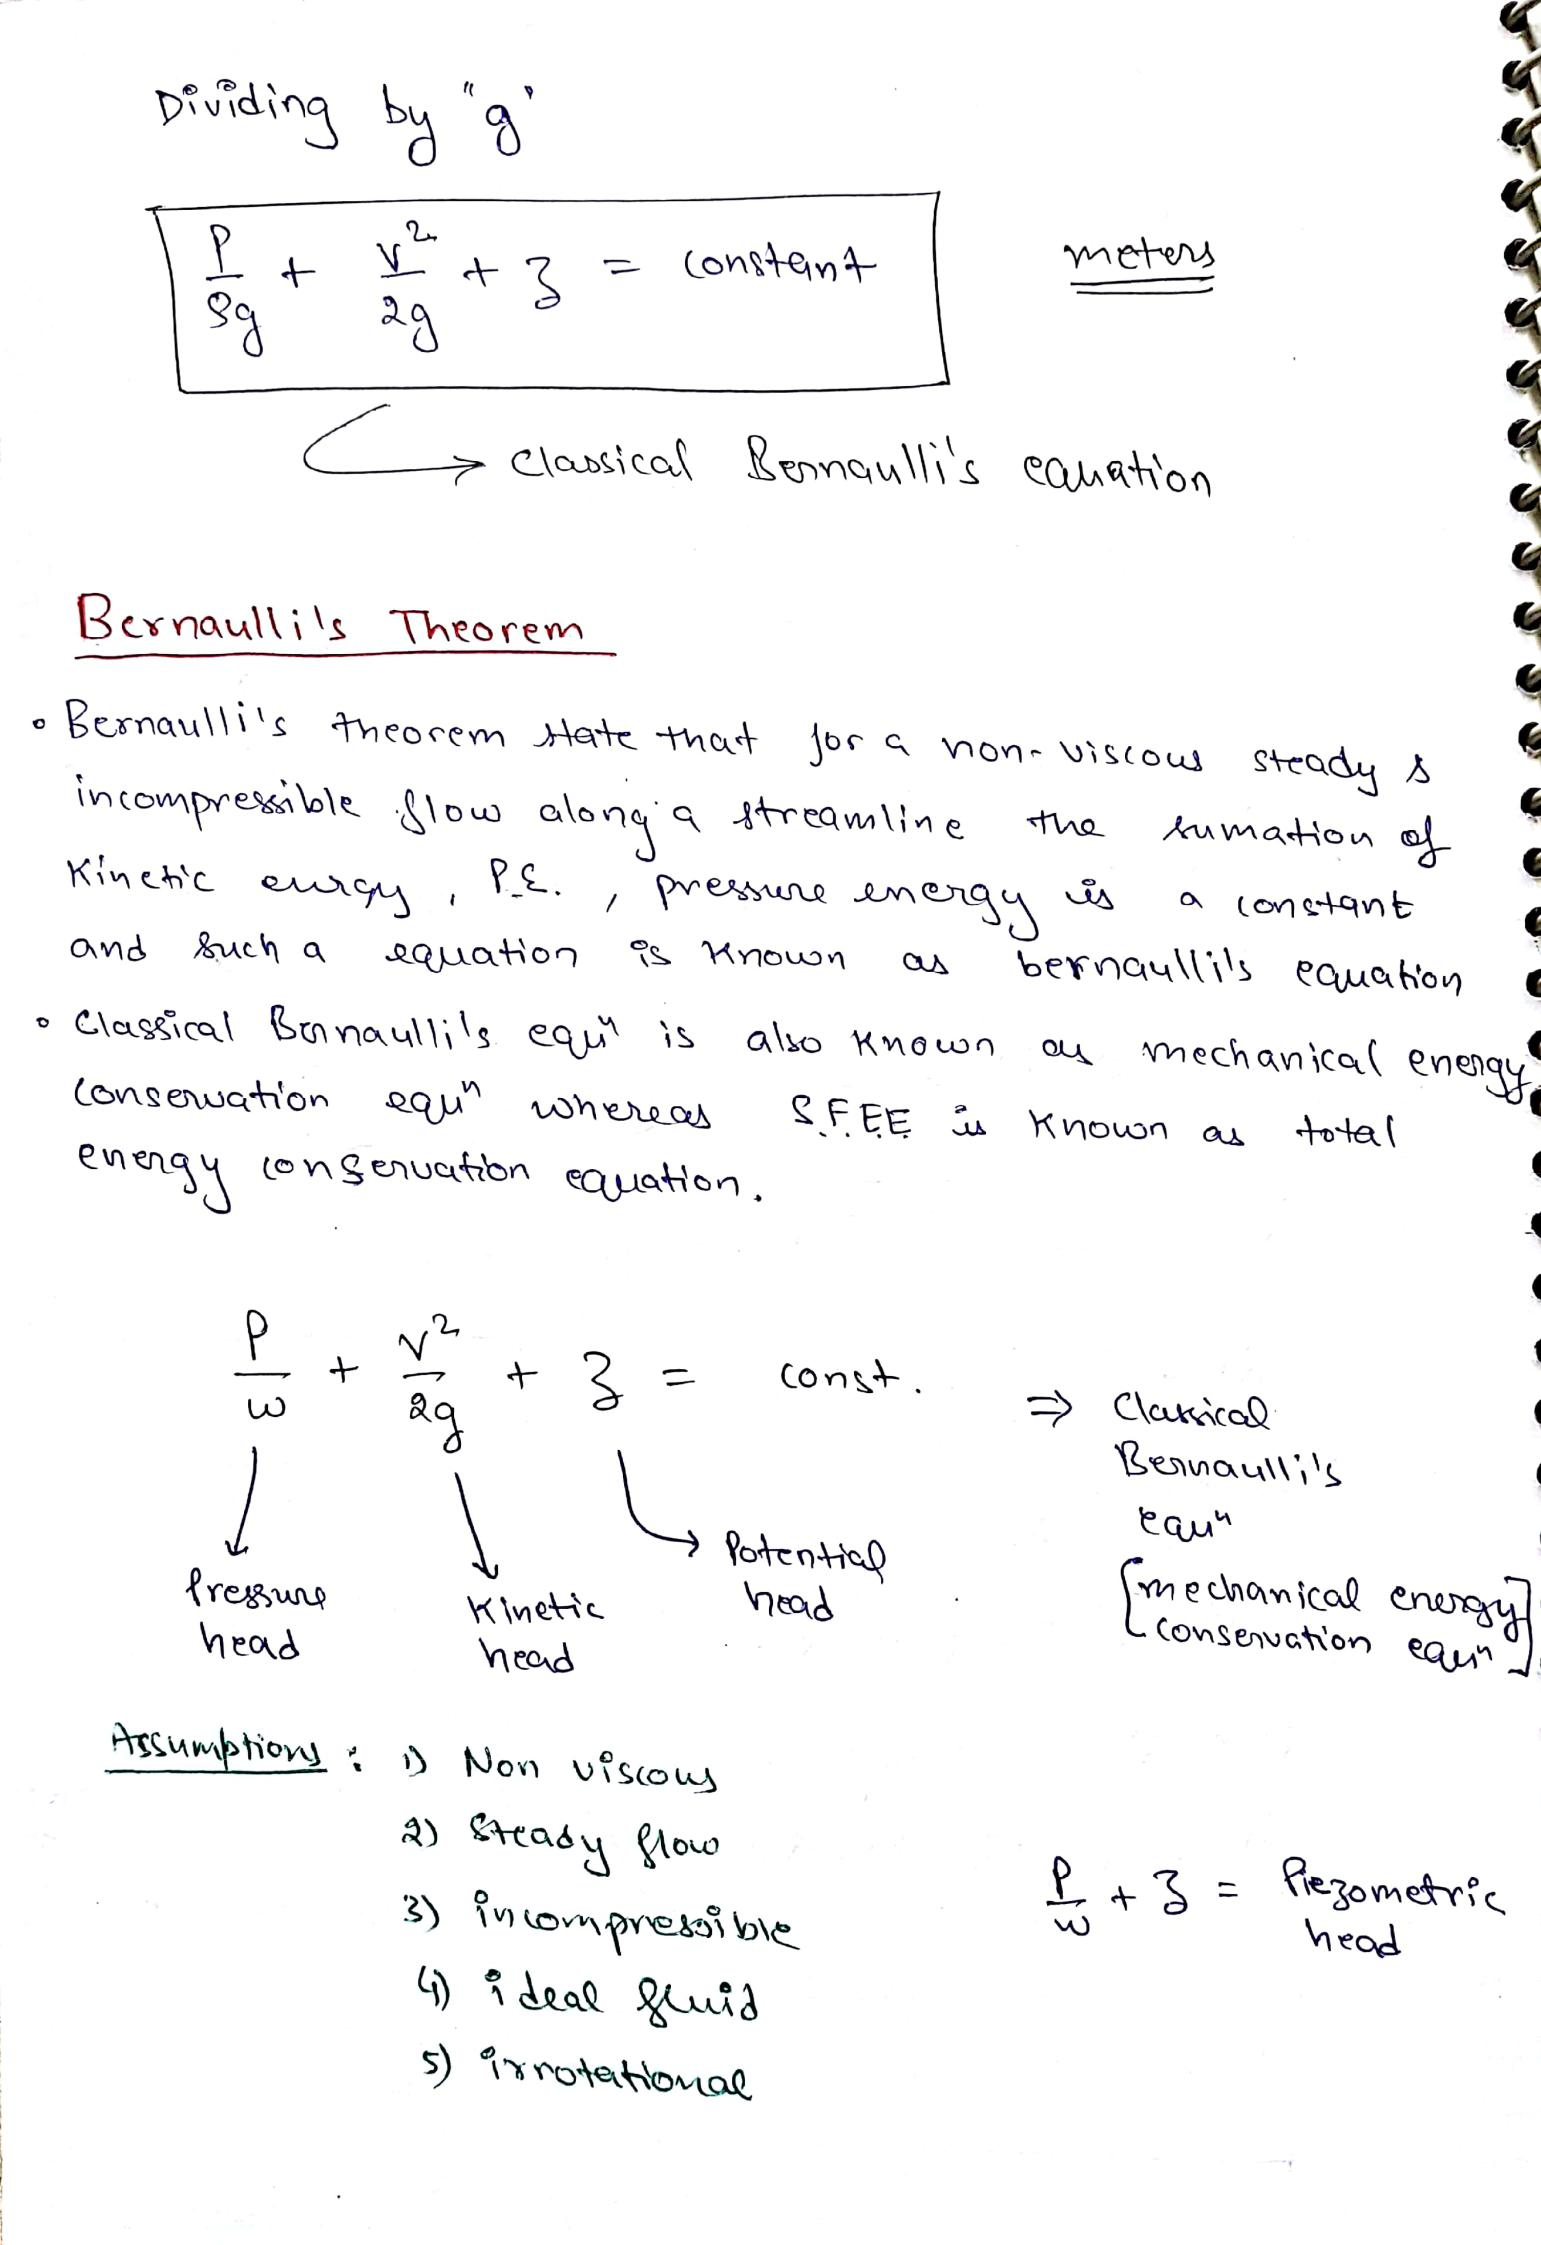 Dividing by "g"
P/ρg + v²/2g + z = constant meters
→ Classical Bernaulli's equation
Bernaulli's Theorem
• Bernaulli's theorem state that for a non-viscous steady &
incompressible flow along a streamline the sumation of
Kinetic energy, P.E., pressure energy is a constant
and such a equation is known as bernaulli's equation
• Classical Bernaulli's equⁿ is also known as mechanical energy
conservation equⁿ whereas S.F.E.E is known as total
energy conservation equation.
P/w + v²/2g + z = const. ⇒ Classical
Bernaulli's
equⁿ
[mechanical energy
conservation equⁿ]
Pressure
head
Kinetic
head
Potential
head
Assumptions : 1) Non viscous
2) Steady flow
3) incompressible
4) ideal fluid
5) irrotational
P/w + z = Piezometric
head